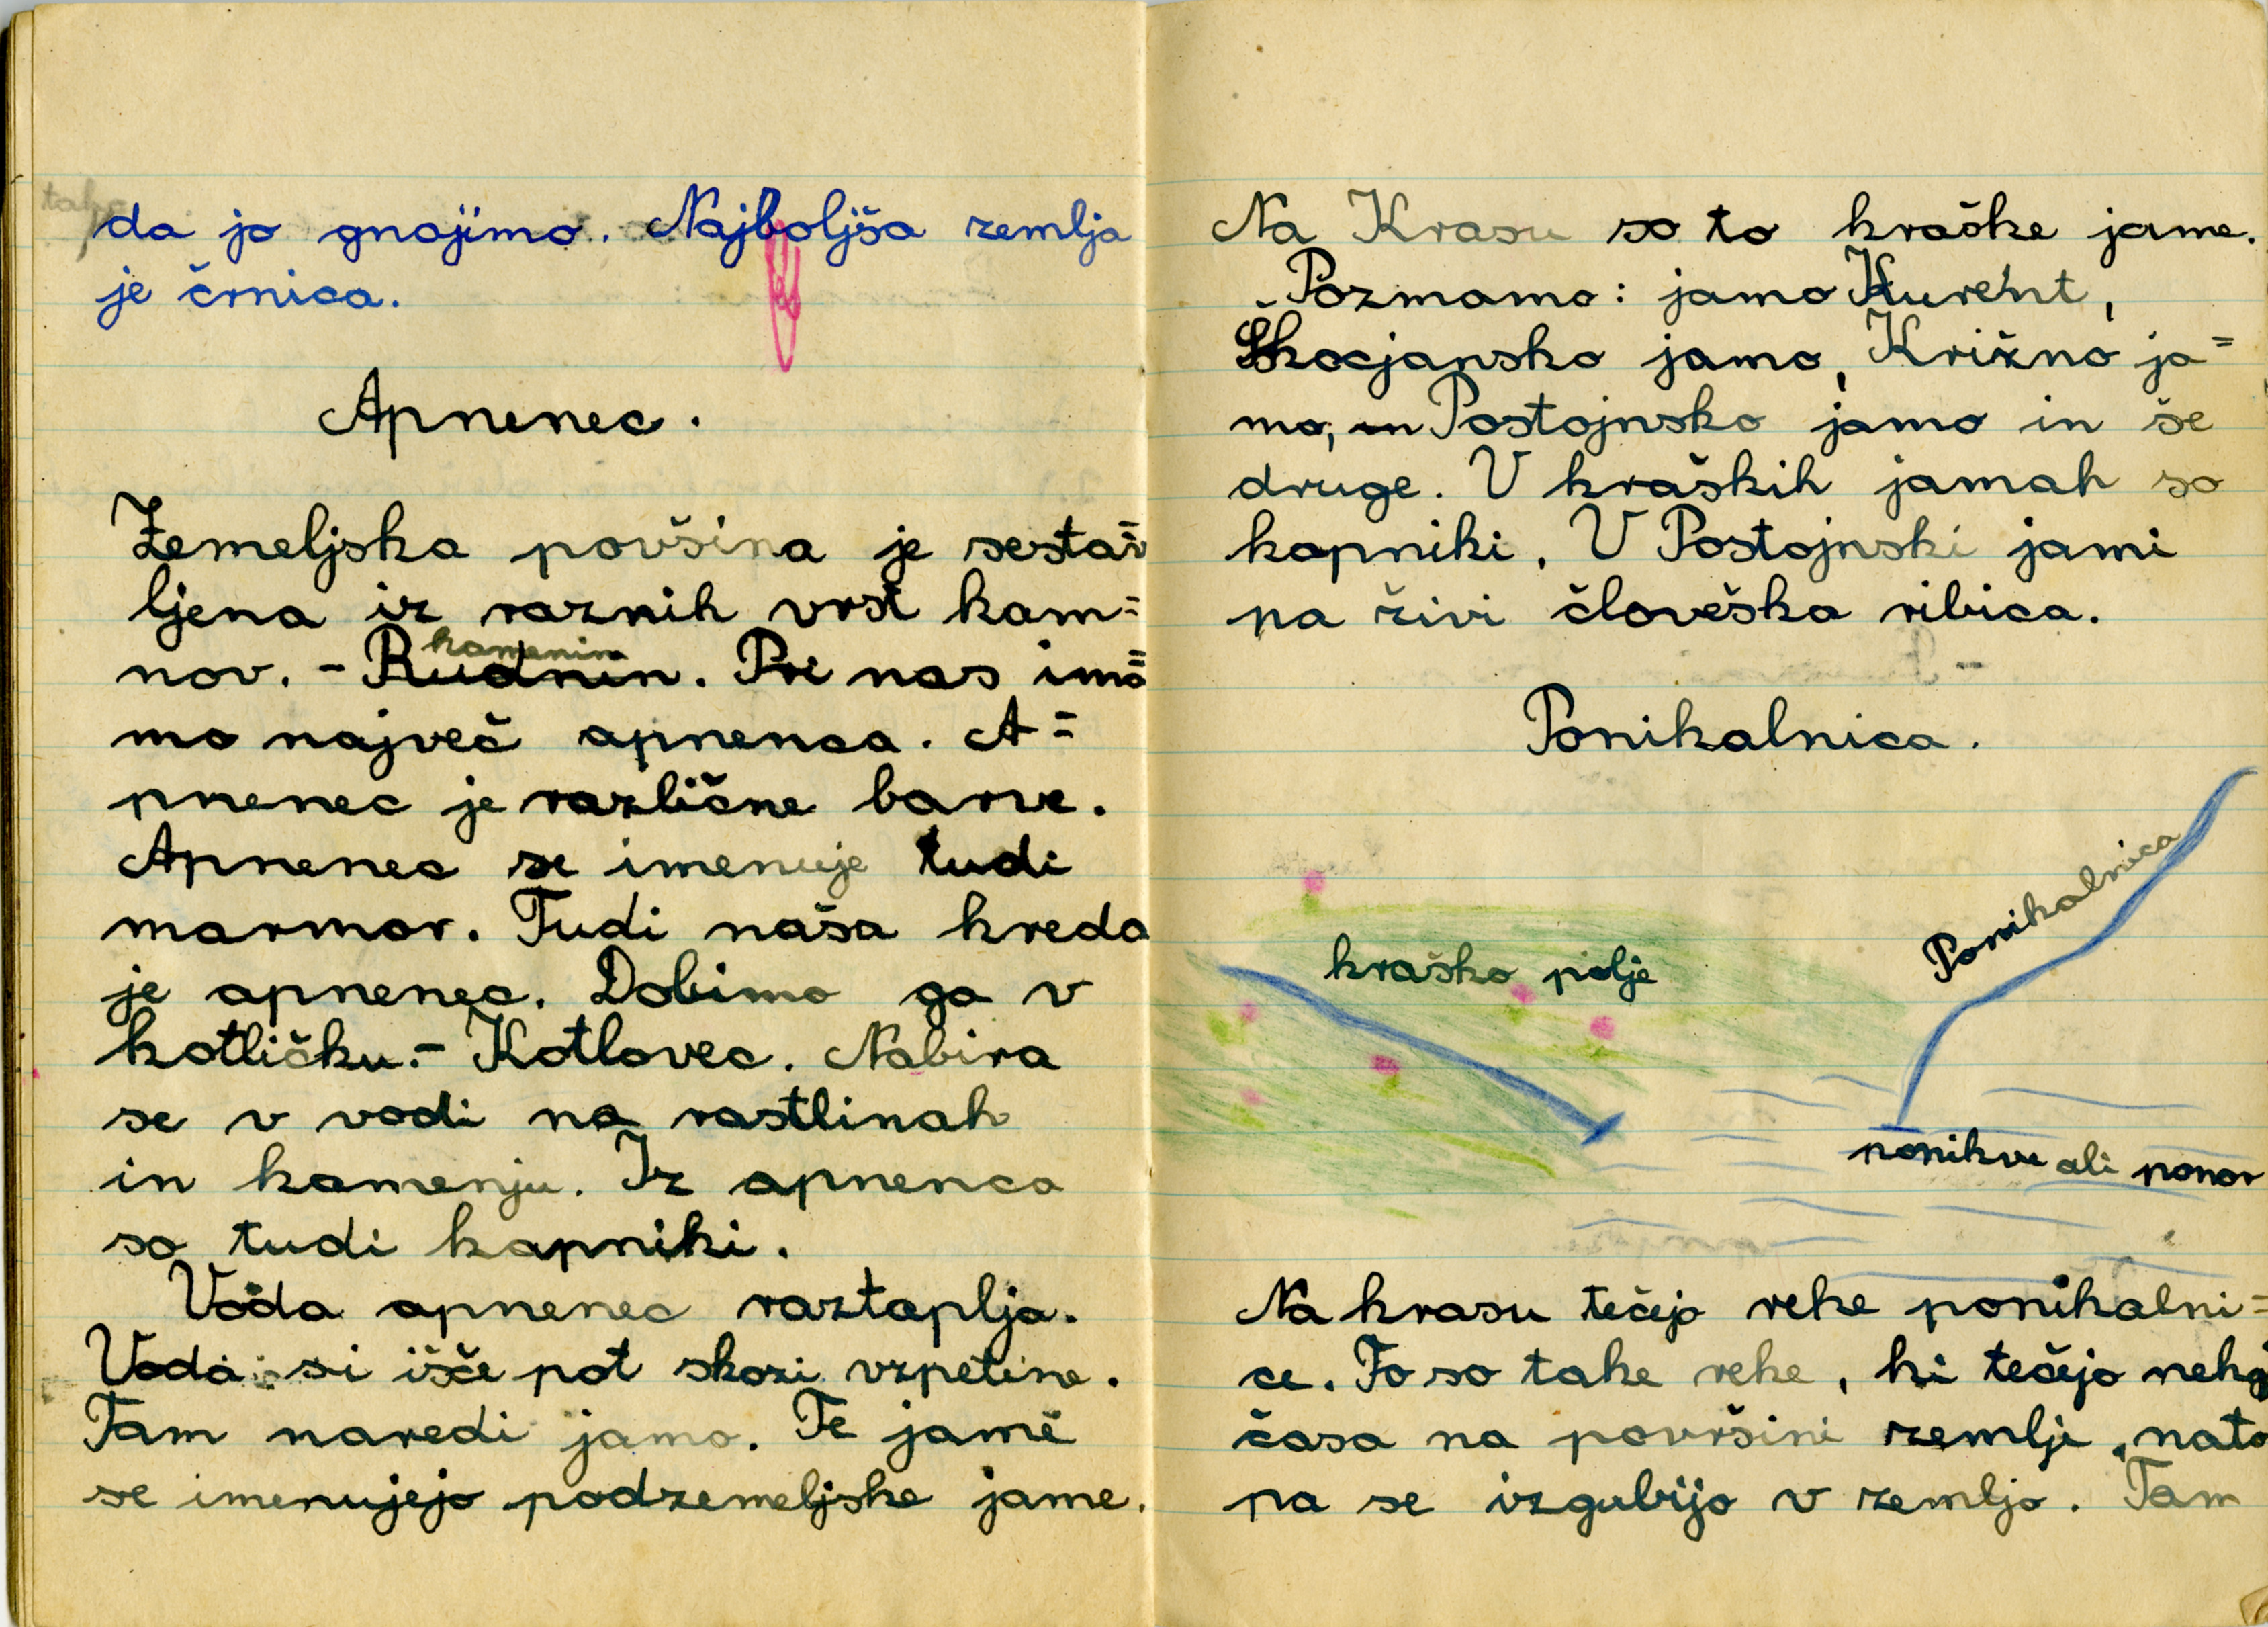 da jo gnojimo. Najboljša zemlja
je črnica.
Apnenec.
Zemeljska povšina je sestav=
ljena iz raznih vrst kam=
nov. - Rudnin. Pri nas ima=
kamenin
mo največ apnenca. A=
pnenec je različne barve.
Apnenec se imenuje tudi
marmor. Tudi naša kreda
je apnenec. Dobimo ga v
kotličku. - Kotlovec. Nabira
se v vodi na rastlinah
in kamenju. Iz apnenca
so tudi kapniki.
Voda apnenec raztaplja.
Voda si išče pot skozi vzpetine.
Tam naredi jamo. Te jame
se imenujejo podzemeljske jame.
Na Krasu so to kraške jame.
Poznamo: jamo Kurent,
Škocjansko jamo, Križno ja=
mo, in Postojnsko jamo in še
druge. V kraških jamah so
kapniki. V Postojnski jami
pa živi človeška ribica.
Ponikalnica.
Ponikalnica
kraško polje
ponikve ali ponor
Na krasu tečejo reke ponikalni=
ce. To so take reke, ki tečejo neka
časa na površini zemlje, nato
pa se izgubijo v zemljo. Tam